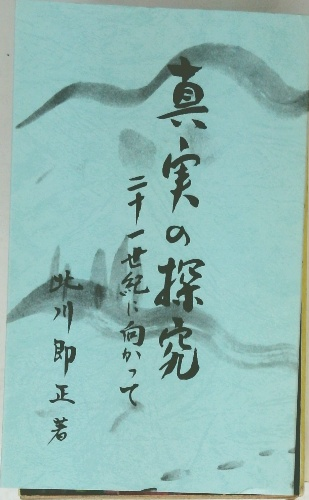 真実の探究
二十一世紀に向かって
此川即正著